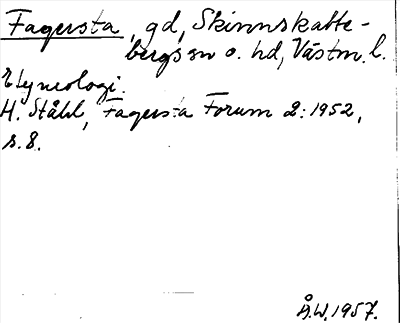 Fagersta, gd, Skinnskatte-
bergs sn o. hd, Västm. l.
Etymologi.
H. Ståhl, Fagersta Forum 2:1952,
s. 8.
Å.W. 1957.